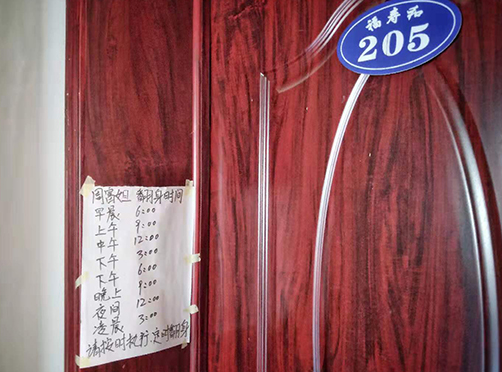 福寿苑
205
周富如 翻身时间
早晨 6:00
上午 9:00
中午 12:00
下午 3:00
下午 6:00
晚上 9:00
夜间 12:00
凌晨 3:00
请按时执行.定时翻身